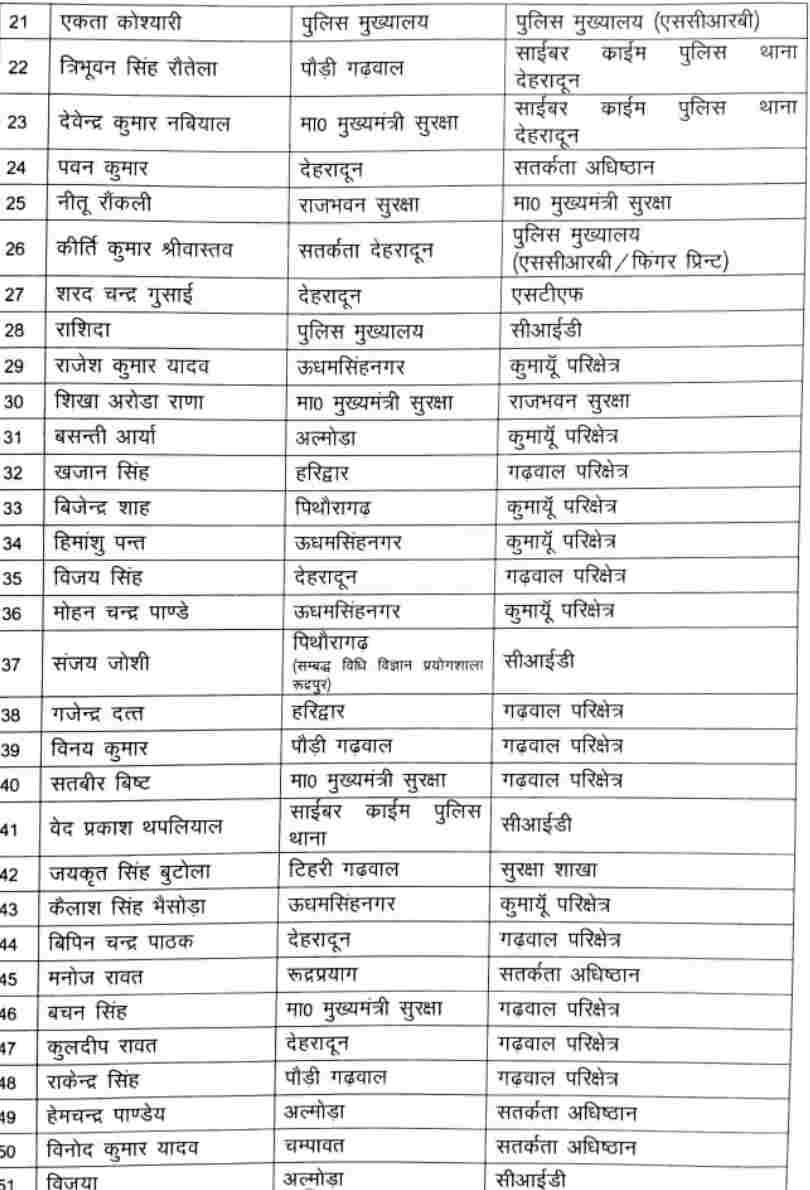 21 एकता कोश्यारी पुलिस मुख्यालय पुलिस मुख्यालय (एससीआरबी)
22 त्रिभूवन सिंह रौतेला पौड़ी गढ़वाल साईबर काईम पुलिस थाना
देहरादून
23 देवेन्द्र कुमार नबियाल मा0 मुख्यमंत्री सुरक्षा साईबर काईम पुलिस थाना
देहरादून
24 पवन कुमार देहरादून सतर्कता अधिष्ठान
25 नीतू रौंकली राजभवन सुरक्षा मा0 मुख्यमंत्री सुरक्षा
26 कीर्ति कुमार श्रीवास्तव सतर्कता देहरादून पुलिस मुख्यालय
(एससीआरबी/फिंगर प्रिन्ट)
27 शरद चन्द्र गुसाई देहरादून एसटीएफ
28 राशिदा पुलिस मुख्यालय सीआईडी
29 राजेश कुमार यादव ऊधमसिंहनगर कुमायूँ परिक्षेत्र
30 शिखा अरोडा राणा मा0 मुख्यमंत्री सुरक्षा राजभवन सुरक्षा
31 बसन्ती आर्या अल्मोडा कुमायूँ परिक्षेत्र
32 खजान सिंह हरिद्वार गढ़वाल परिक्षेत्र
33 बिजेन्द्र शाह पिथौरागढ कुमायूँ परिक्षेत्र
34 हिमांशु पन्त ऊधमसिंहनगर कुमायूँ परिक्षेत्र
35 विजय सिंह देहरादून गढ़वाल परिक्षेत्र
36 मोहन चन्द्र पाण्डे ऊधमसिंहनगर कुमायूँ परिक्षेत्र
37 संजय जोशी पिथौरागढ सीआईडी
(सम्बद्ध विधि विज्ञान प्रयोगशाला
रूद्रपुर)
38 गजेन्द्र दत्त हरिद्वार गढ़वाल परिक्षेत्र
39 विनय कुमार पौड़ी गढ़वाल गढ़वाल परिक्षेत्र
40 सतबीर बिष्ट मा0 मुख्यमंत्री सुरक्षा गढ़वाल परिक्षेत्र
41 वेद प्रकाश थपलियाल साईबर काईम पुलिस सीआईडी
थाना
42 जयकृत सिंह बुटोला टिहरी गढवाल सुरक्षा शाखा
43 कैलाश सिंह भैसोड़ा ऊधमसिंहनगर कुमायूँ परिक्षेत्र
44 बिपिन चन्द्र पाठक देहरादून गढ़वाल परिक्षेत्र
45 मनोज रावत रूद्रप्रयाग सतर्कता अधिष्ठान
46 बचन सिंह मा0 मुख्यमंत्री सुरक्षा गढ़वाल परिक्षेत्र
47 कुलदीप रावत देहरादून गढ़वाल परिक्षेत्र
48 राकेन्द्र सिंह पौडी गढवाल गढ़वाल परिक्षेत्र
49 हेमचन्द्र पाण्डेय अल्मोड़ा सतर्कता अधिष्ठान
50 विनोद कुमार यादव चम्पावत सतर्कता अधिष्ठान
51 विजया अल्मोडा सीआईडी